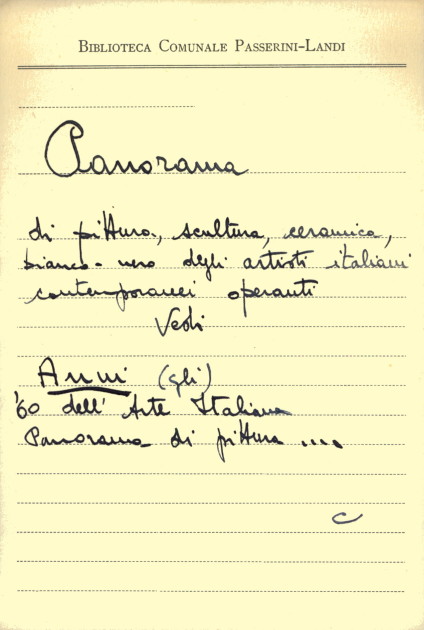 BIBLIOTECA COMUNALE PASSERINI-LANDI
Panorama
di pittura, scultura, ceramica,
bianco-nero degli artisti italiani
contemporanei operanti
Vedi
Anni (gli)
'60 dell'Arte Italiana
Panorama di pittura ....
C